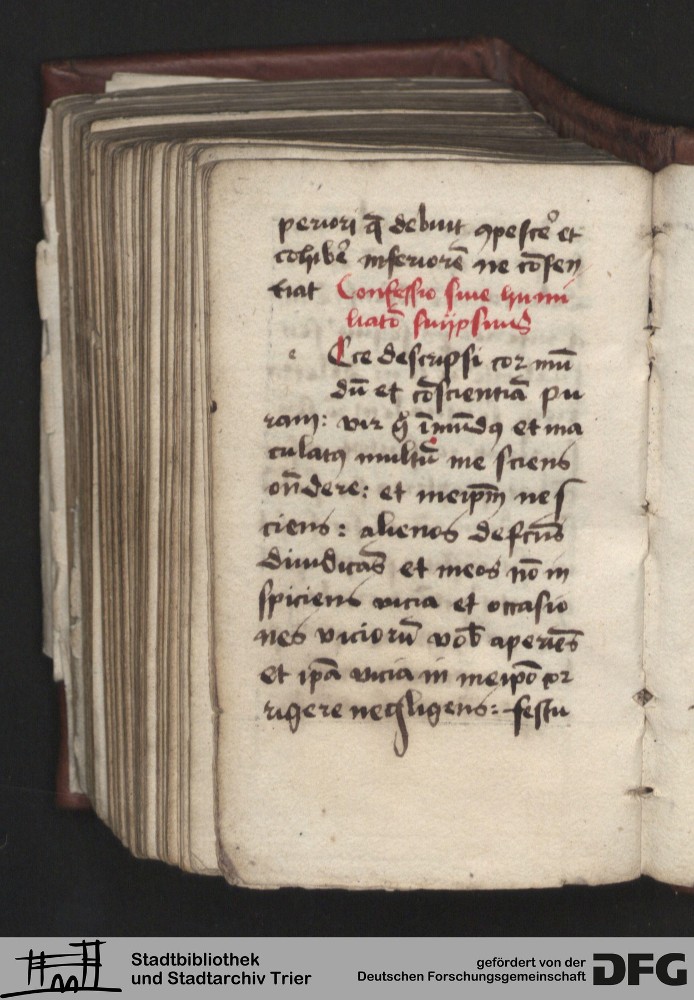 periori q̄ debuit ꝯpesce᷒ et
cohibe᷒ inferiorē ne cōsen
tiat Confessio siue humi
liatō suiipsius
Ecce descripsi cor mū
dū et cōscientiā pu
ram: vir g̊ īmūdꝯ et ma
culatꝯ multū me sciens
on̄dere: et meip̄m nes
ciens: alienos defc̄us
diiudicās et meos nō in
spiciens vicia et occasio
nes viciorū vob̄ aperiēs
et ip̄a vicia in meip̄o cor
rigere negligens: festu
Stadtbibliothek
und Stadtarchiv Trier
gefördert von der
Deutschen Forschungsgemeinschaft
DFG